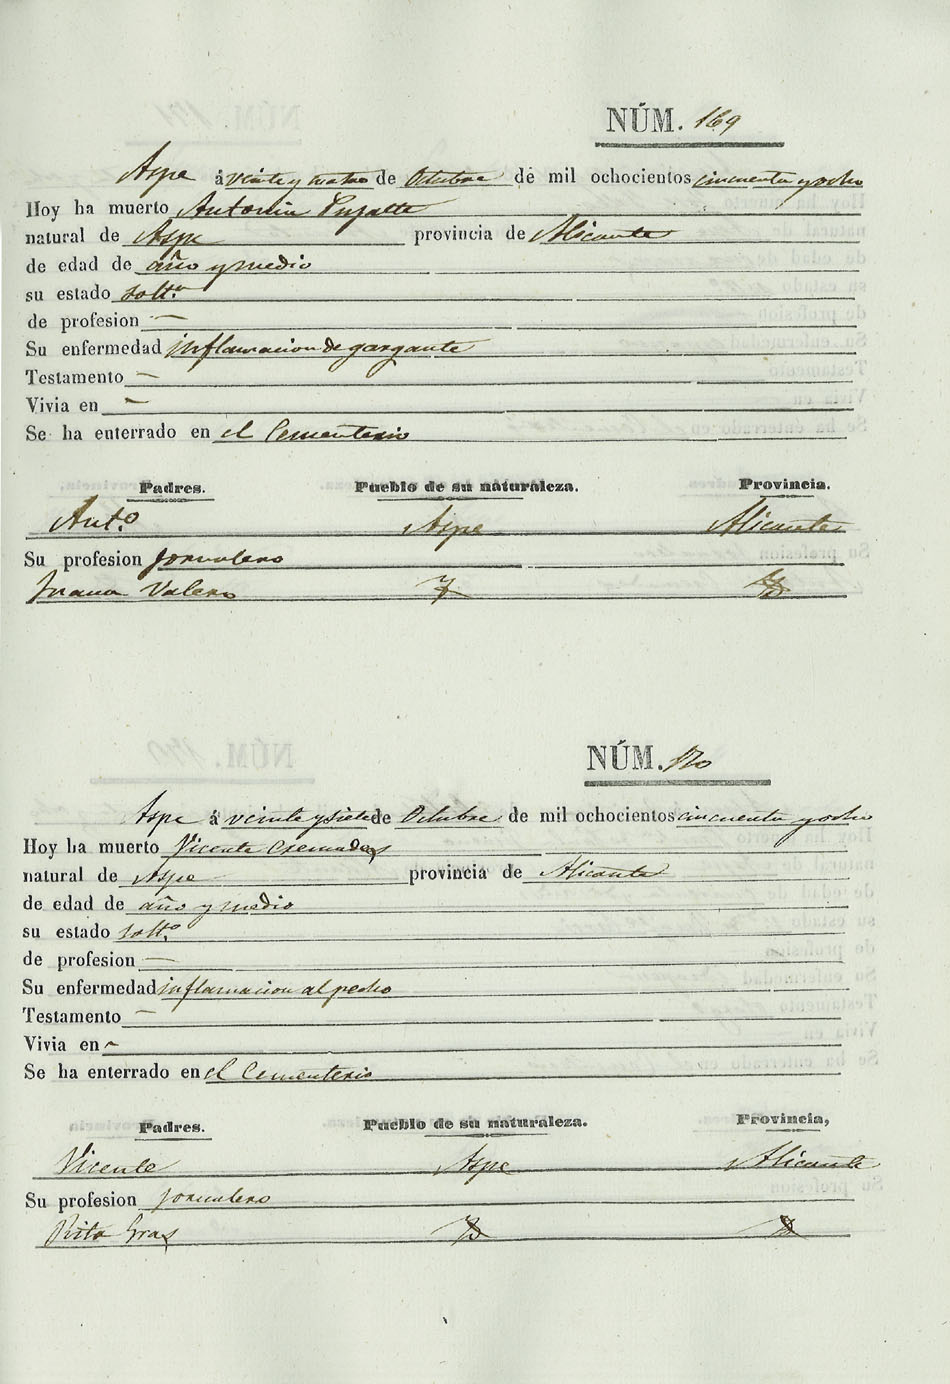 NÚM. 169
Aspe á veinte y cuatro de Octubre de mil ochocientos cincuenta y ocho
Hoy ha muerto Antonia
natural de Aspe provincia de Alicante
de edad de año y medio
su estado solt.ª
de profesion —
Su enfermedad inflamacion de gargante
Testamento —
Vivia en —
Se ha enterrado en el Cementerio
Padres. Pueblo de su naturaleza. Provincia.
Ant.º Aspe Alicante
Su profesion Jornalero
Juana Valero
NÚM. 170
Aspe á veinte y siete de Octubre de mil ochocientos cincuenta y ocho
Hoy ha muerto Vicente Cremades
natural de Aspe provincia de Alicante
de edad de año y medio
su estado solt.º
de profesion —
Su enfermedad inflamacion al pecho
Testamento —
Vivia en —
Se ha enterrado en el Cementerio
Padres. Pueblo de su naturaleza. Provincia,
Vicente Aspe Alicante
Su profesion Jornalero
Rita Gras